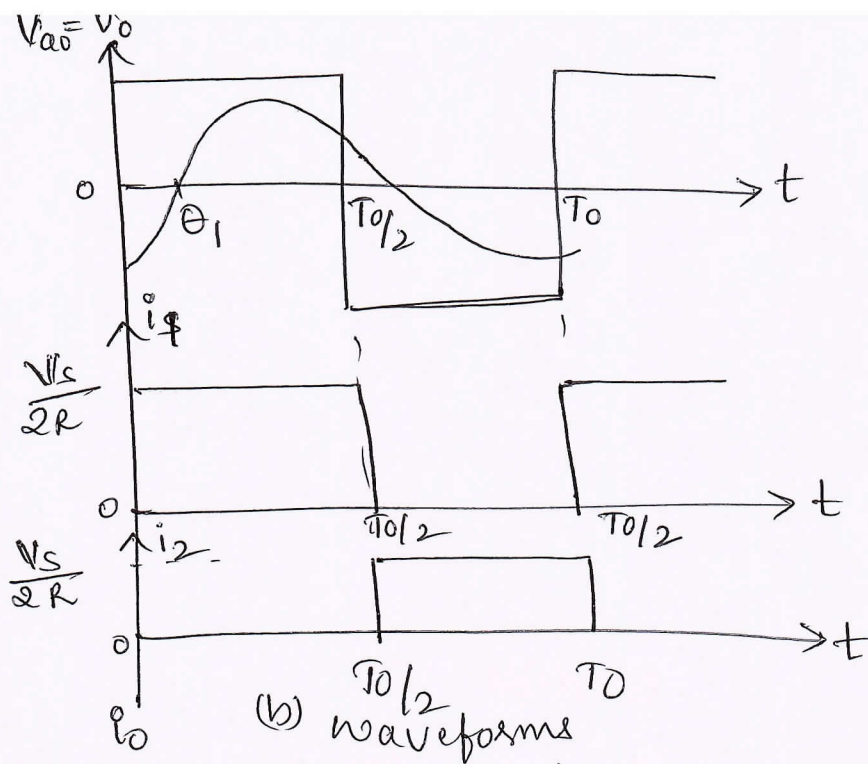 Vao = Vo
0
θ1
To/2
To
t
i1
Vs/2R
0
To/2
To/2
t
i2
Vs/2R
0
To/2
To
t
io
(b) waveforms